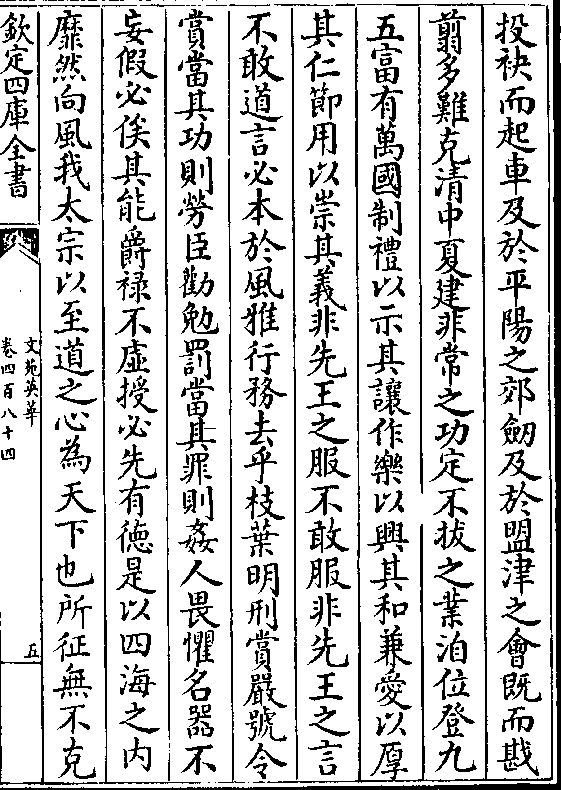 投袂而起車及於平陽之郊劒及於盟津之會既而戡
翦多難克清中夏建非常之功定不拔之業洎位登九
五富有萬國制禮以示其讓作樂以興其和兼愛以厚
其仁節用以崇其義非先王之服不敢服非先王之言
不敢道言必本於風雅行務去乎枝葉明刑賞嚴號令
賞當其功則勞臣勸勉罰當其罪則姦人畏懼名器不
妄假必俟其能爵祿不虛授必先有徳是以四海之内
靡然向風我太宗以至道之心為天下也所征無不克
欽定四庫全書
文苑英華
卷四百八十四
五